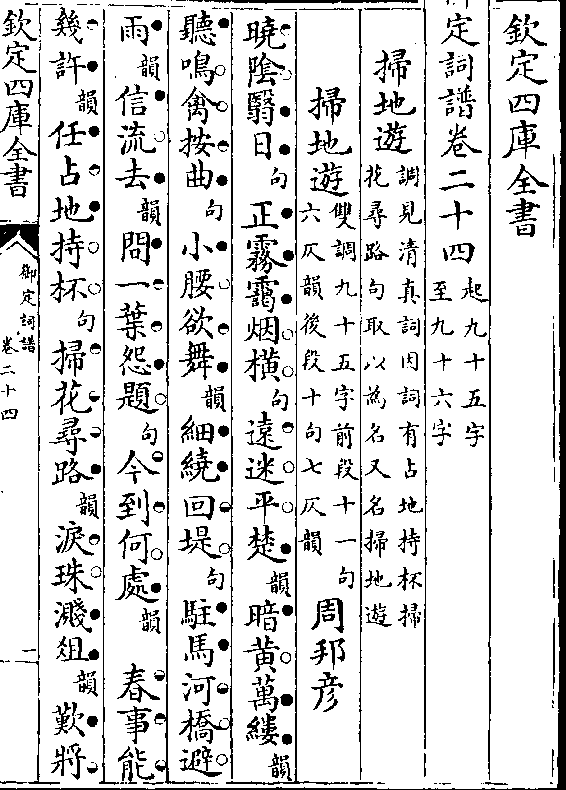 欽定四庫全書
定詞譜卷二十四 起九十五字至九十六字
掃地遊 調見清真詞因詞有占地持杯掃花尋路句取以為名又名掃地遊
掃地遊 雙調九十五字前段十一句六仄韻後段十句七仄韻 周邦彦
曉陰翳日句正霧靄烟横句遠迷平楚韻暗黄萬縷韻
聽鳴禽按曲句小腰欲舞韻細繞回堤句駐馬河橋避
雨韻信流去韻問一葉怨題句今到何處韻 春事能
幾許韻任占地持杯句掃花尋路韻淚珠濺俎韻歎將
欽定四庫全書 御定詞譜 卷二十四 二